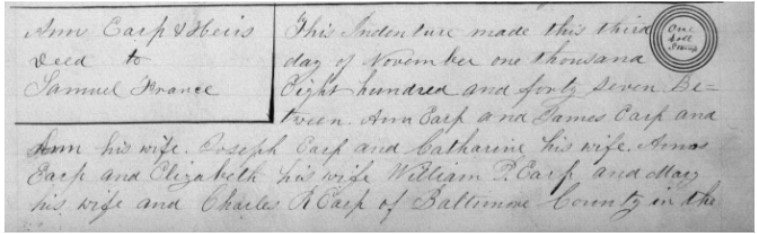 Ann Earp & Heirs
Deed to
Samuel France
This Indenture made this third
day of November one thousand
Eight hundred and forty seven Be=
tween Ann Earp and James Earp and
Ann his wife. Joseph Earp and Catharine his wife. Amos
Earp and Elizabeth his wife William P. Earp and Mary
his wife and Charles R Earp of Baltimore County in the
One
Doll
Stamp